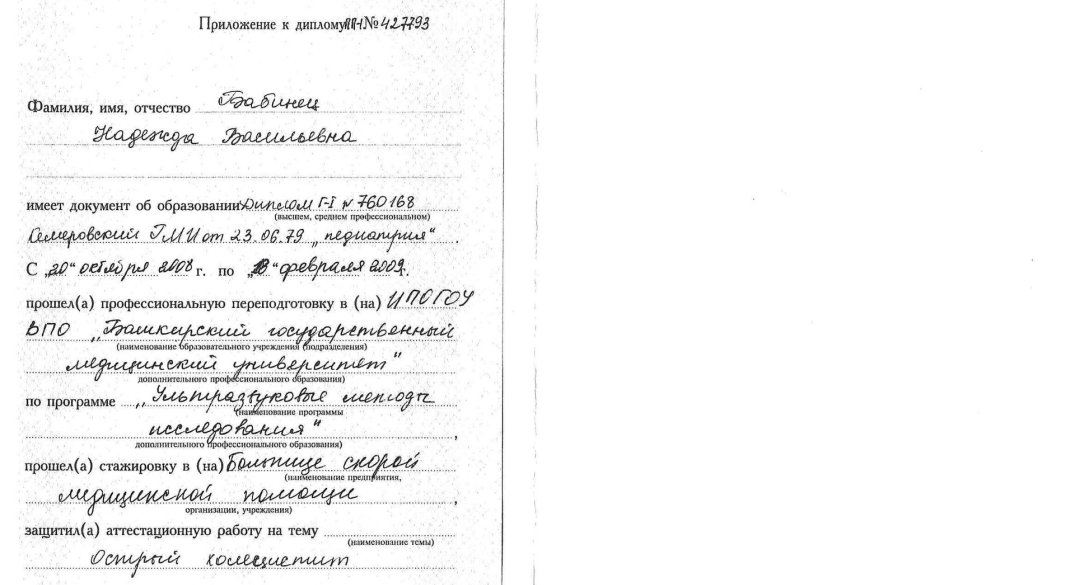 Приложение к диплому ПП-I № 427793
Фамилия, имя, отчество Бабинец
Надежда Васильевна
имеет документ об образовании Диплом Г-I № 760168
(высшем, среднем профессиональном)
Кемеровский ГМИ от 23.06.79 „педиатрия“.
С „20“ октября 2008 г. по „18“ февраля 2009г.
прошел(а) профессиональную переподготовку в (на) ИПО ГОУ
ВПО „Башкирский государственный
(наименование образовательного учреждения (подразделения)
медицинский университет“
дополнительного профессионального образования)
по программе „Ультразвуковые методы
(наименование программы
исследования“,
дополнительного профессионального образования)
прошел(а) стажировку в (на) Больнице скорой
(наименование предприятия,
медицинской помощи,
организации, учреждения)
защитил(а) аттестационную работу на тему
(наименование темы)
Острый холецистит